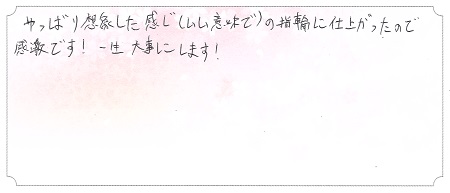 やっぱり想像した感じ(いい意味で)の指輪に仕上がったので
感激です！一生大事にします！